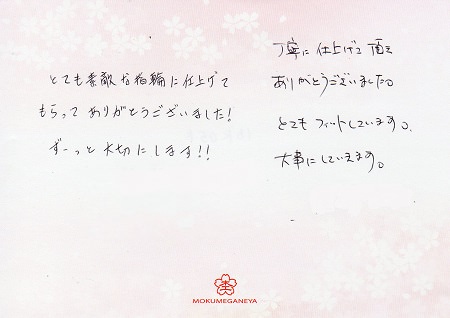 とても素敵な指輪に仕上げて
もらってありがとうございました!
ずーっと大切にします!!
丁寧に仕上げて頂き
ありがとうございました。
とてもフィットしています。
大事にしていきます。
MOKUMEGANEYA